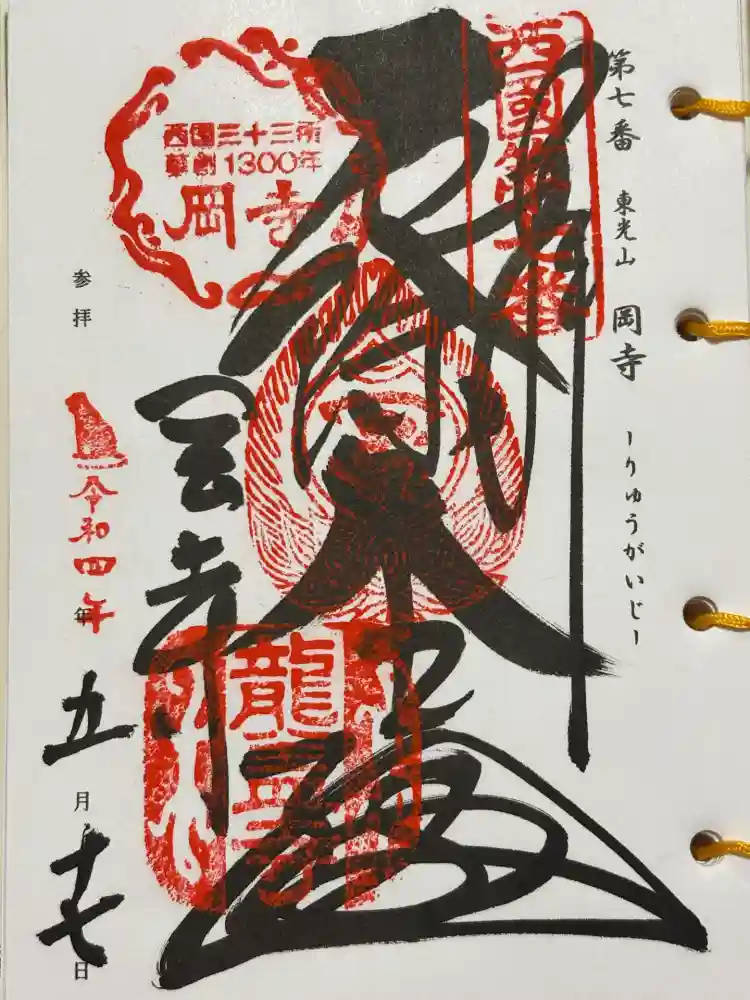 第七番 東光山 岡寺 ーりゅうがいじー
西國第七番
西国三十三所
草創1300年
岡寺
岡寺
参拝
令和四年
五月十七日